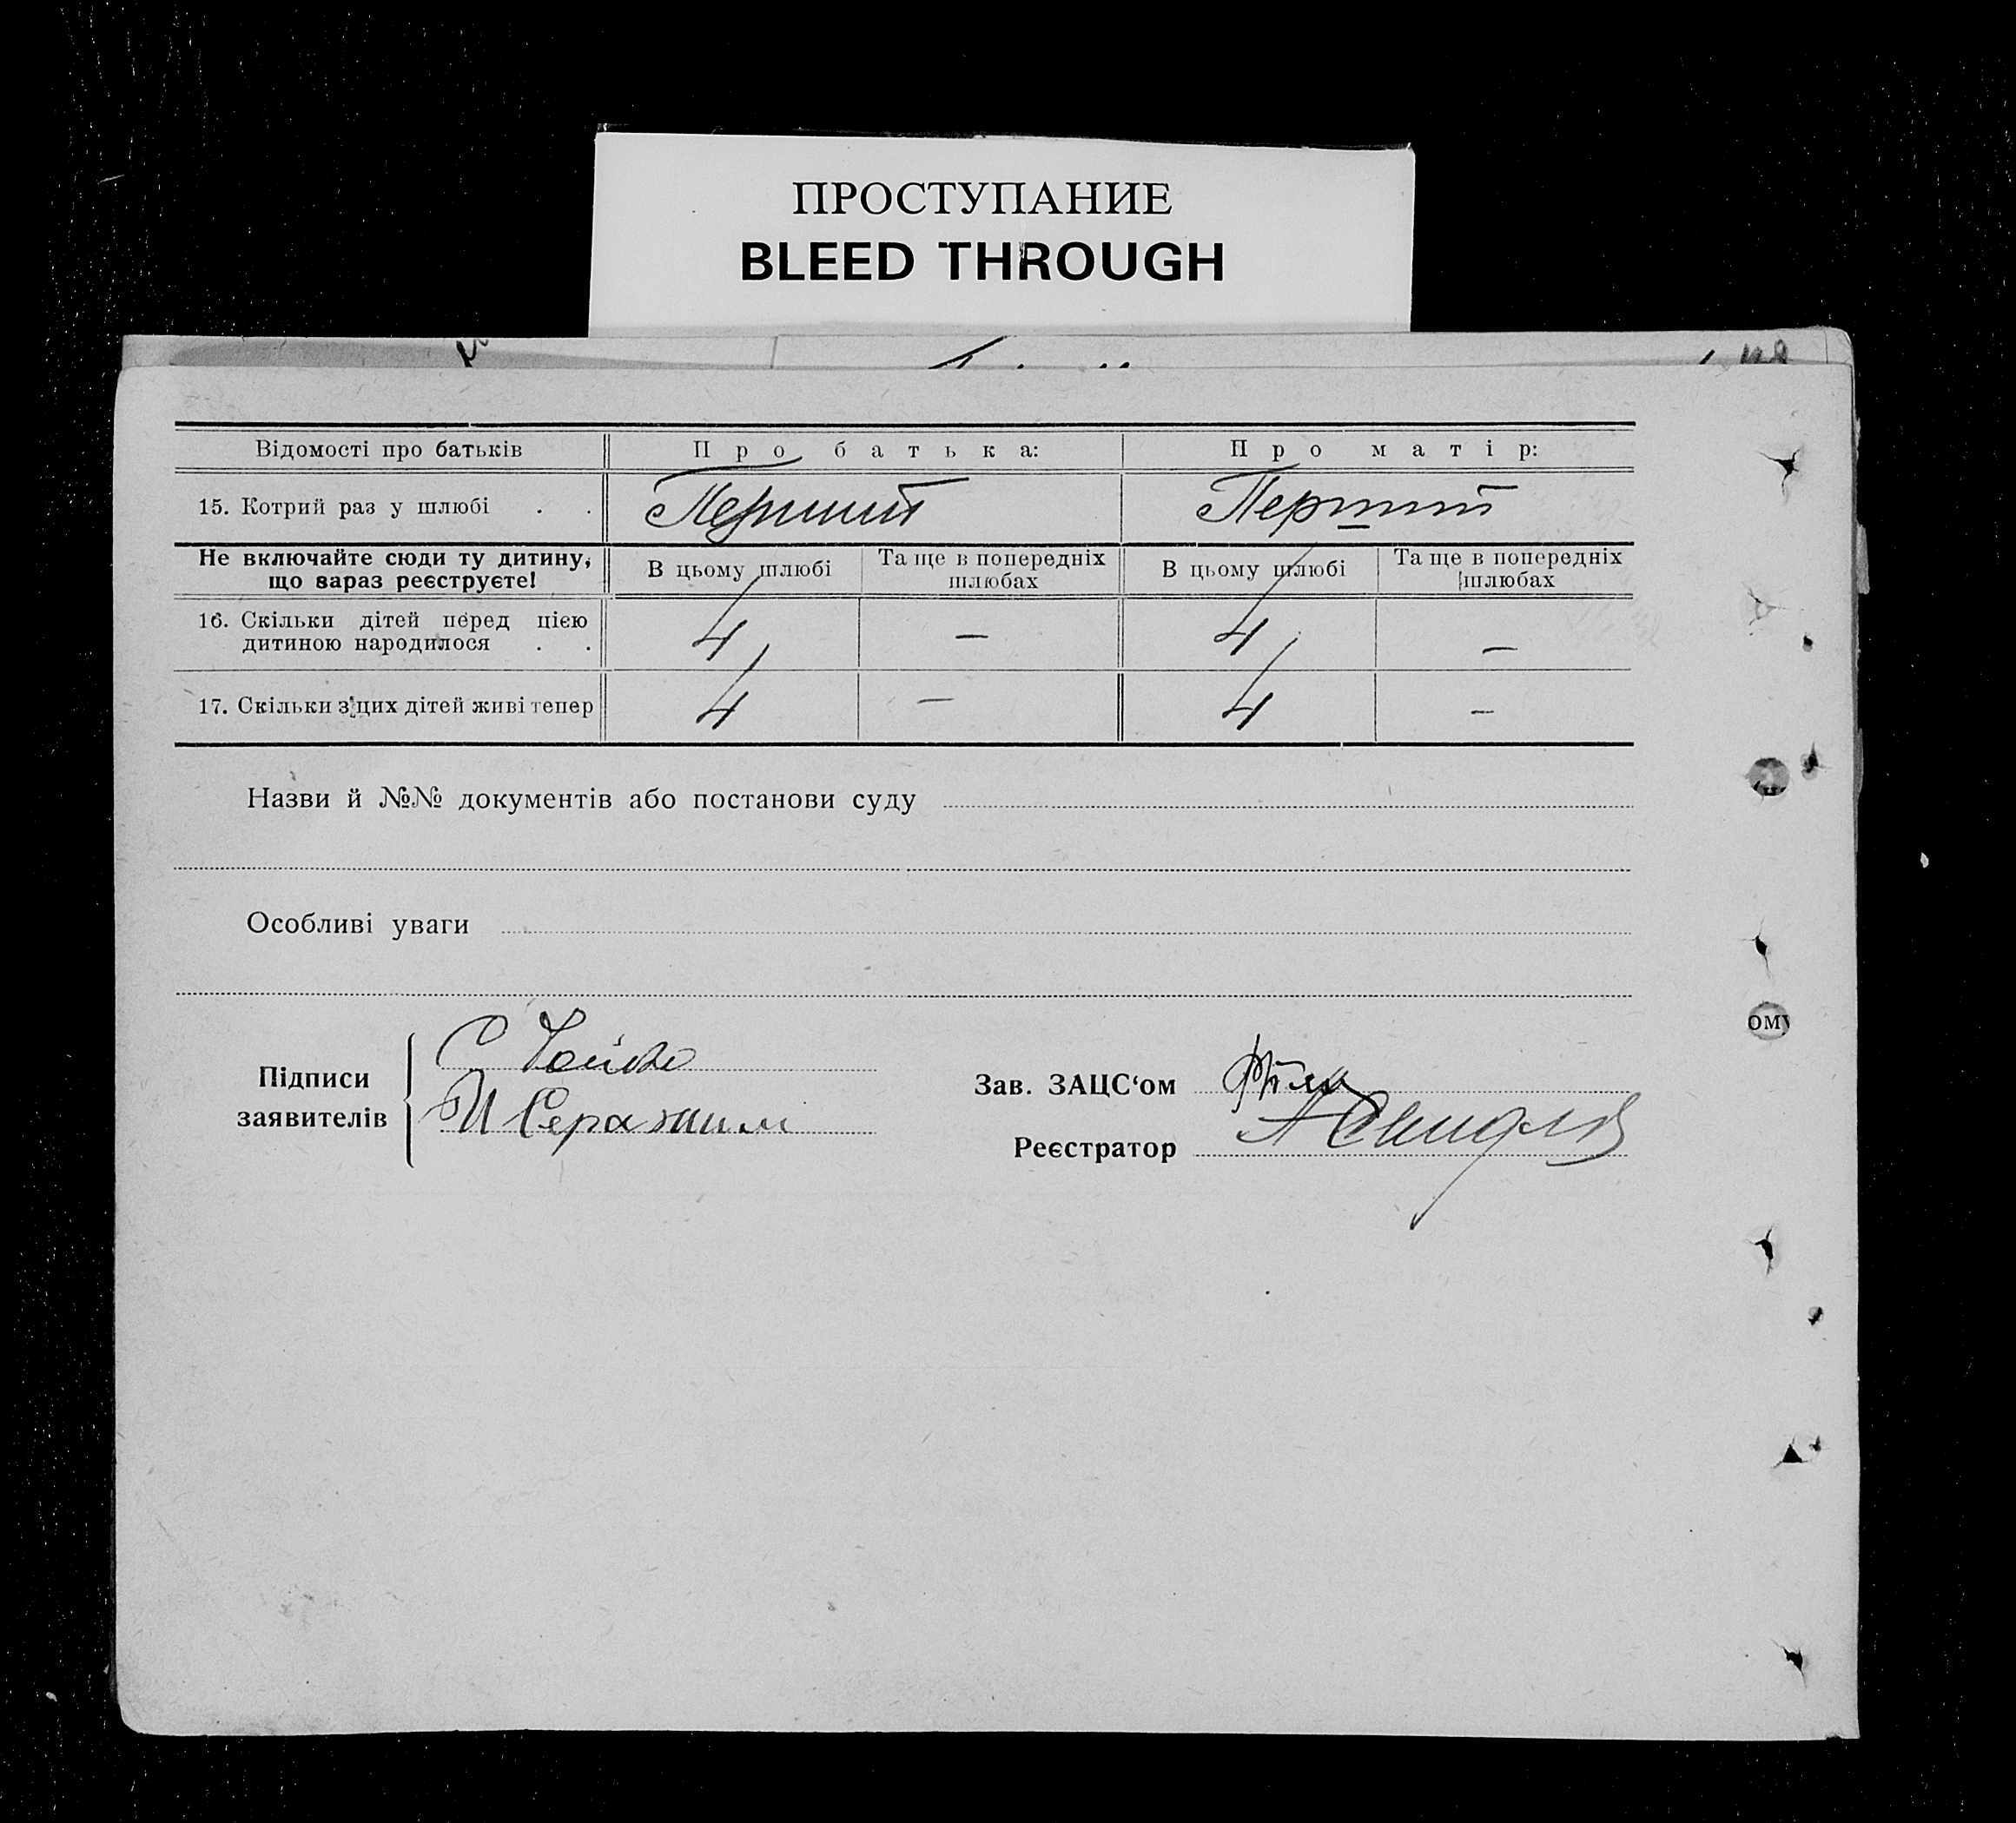 ПРОСТУПАНИЕ
BLEED THROUGH
Відомості про батьків Про батька: Про матір:
15. Котрий раз у шлюбі . . Перший Перший
Не включайте сюди ту дитину, що вараз реєструєте! В цьому шлюбі Та ще в попередніх шлюбах В цьому шлюбі Та ще в попередніх шлюбах
16. Скільки дітей перед цією
дитиною народилося . . 4 — 4 —
17. Скільки з цих дітей живі тепер 4 — 4 —
Назви й №№ документів або постанови суду
Особливі уваги
Підписи
заявителів
С
Зав. ЗАЦС‘ом
Реєстратор
ому